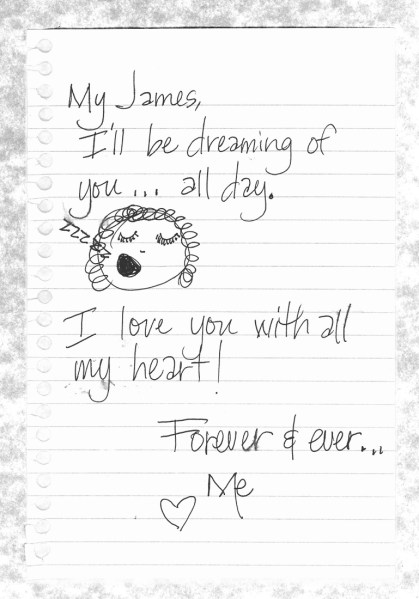 My James,
I'll be dreaming of
you... all day.
zzzzz
I love you with all
my heart!
Forever & ever...
Me